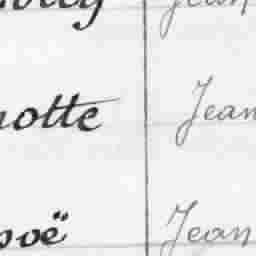 Jean
notte Jean
ooë Jean